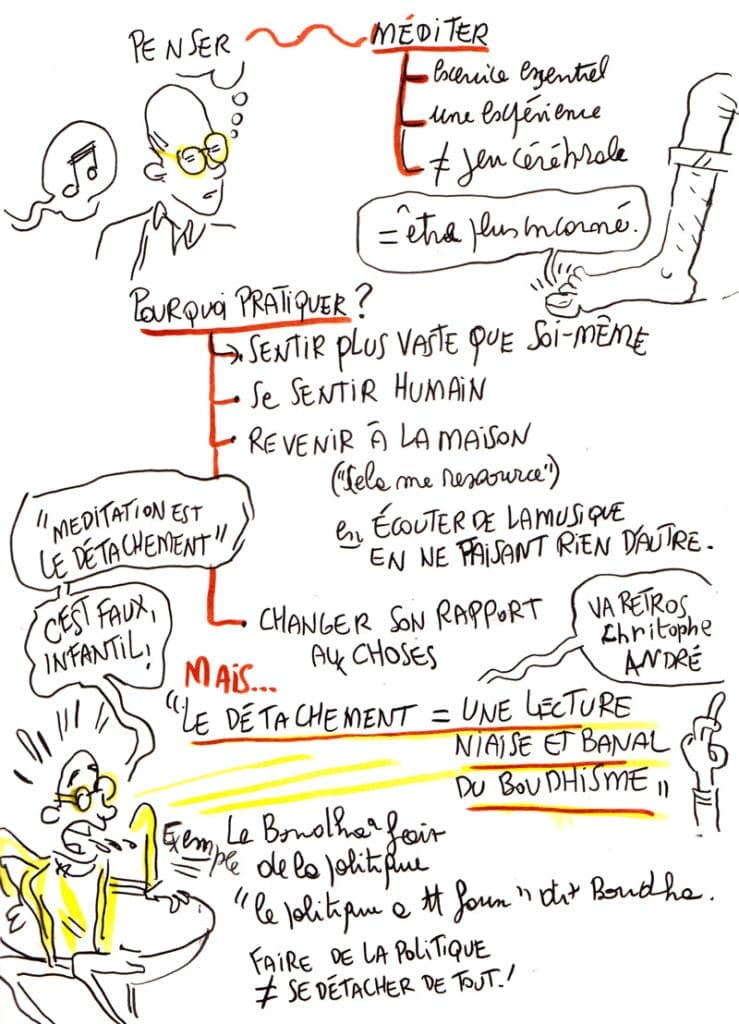 PENSER
MÉDITER
exercice essentiel
une expérience
≠ jeu cérébrale
= être plus incarné.
POURQUOI PRATIQUER ?
SENTIR PLUS VASTE QUE SOI-MÊME
• SE SENTIR HUMAIN
• REVENIR À LA MAISON
("Cela me ressource")
en ÉCOUTER DE LA MUSIQUE
EN NE FAISANT RIEN D'AUTRE.
• CHANGER SON RAPPORT
AUX CHOSES
"MEDITATION EST
LE DÉTACHEMENT"
C'EST FAUX,
INFANTIL!
VA RETROS
Christophe
ANDRÉ
MAIS...
"LE DÉTACHEMENT = UNE LECTURE
NIAISE ET BANAL
DU BOUDHISME"
Exemple
Le Boudha fait
de la politique
"le politique a" dit Boudha.
FAIRE DE LA POLITIQUE
≠ SE DÉTACHER DE TOUT.!